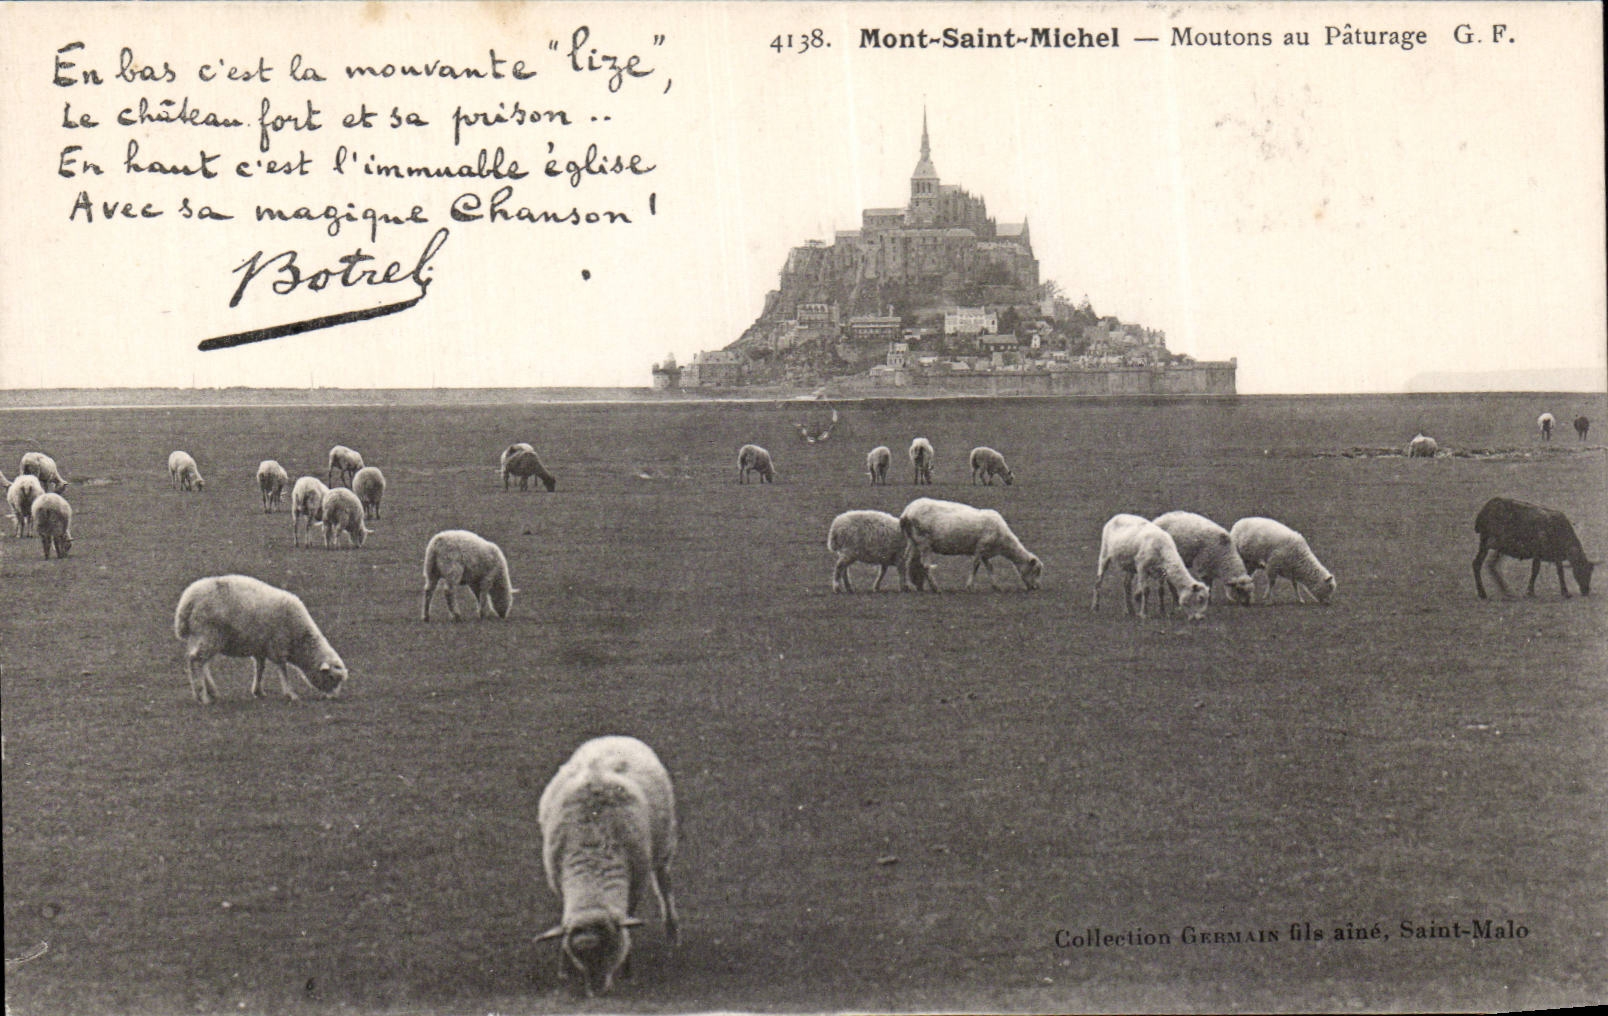 En bas c'est la mouvante "lize",
Le château fort et sa prison ..
En haut c'est l'immuable église
Avec sa magique Chanson !
Botrel
4138. Mont-Saint-Michel — Moutons au Pâturage G. F.
Collection GERMAIN fils aîné, Saint-Malo